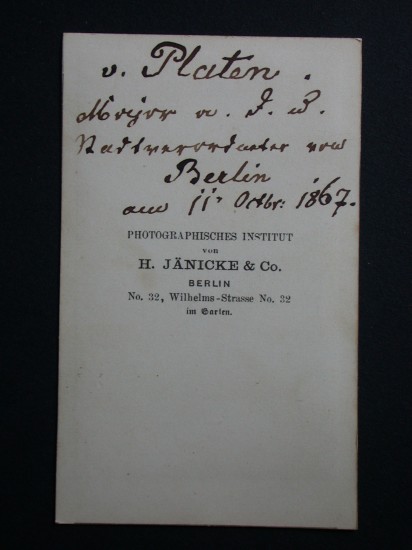 v. Platen.
Major a. D. u.
Stadtverordneter von
Berlin
am 11t Octbr: 1867.
PHOTOGRAPHISCHES INSTITUT
von
H. JÄNICKE & Co.
BERLIN
No. 32, Wilhelms-Strasse No. 32
im Garten.